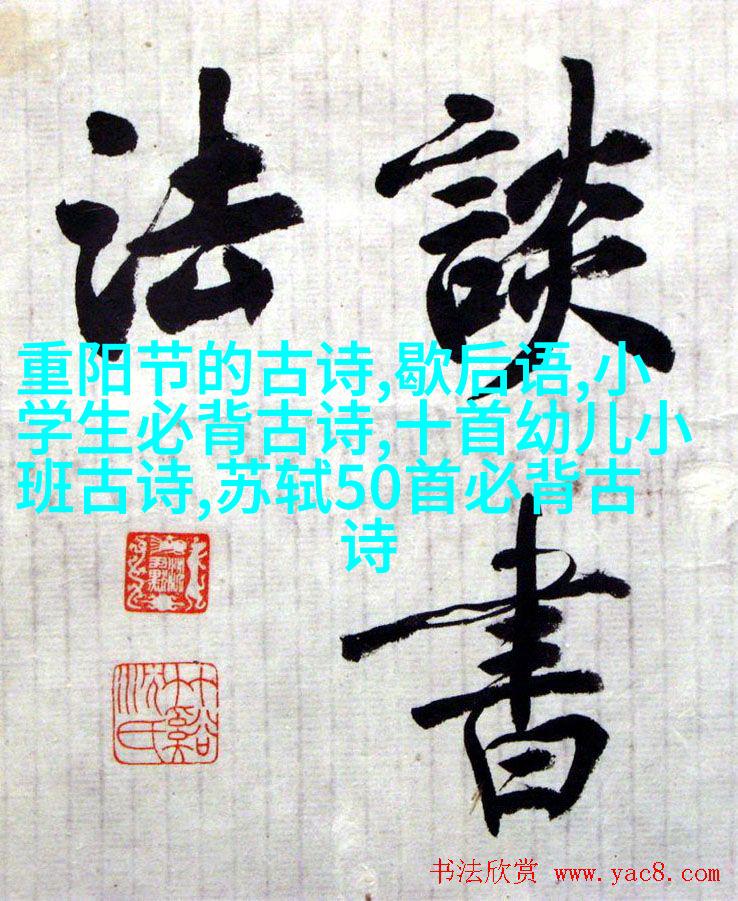 談書
法
重阳节的古诗,歇后语,小
学生必背古诗,十首幼儿小
班古诗,苏轼50首必背古
诗
书法欣赏 www.yac8.com